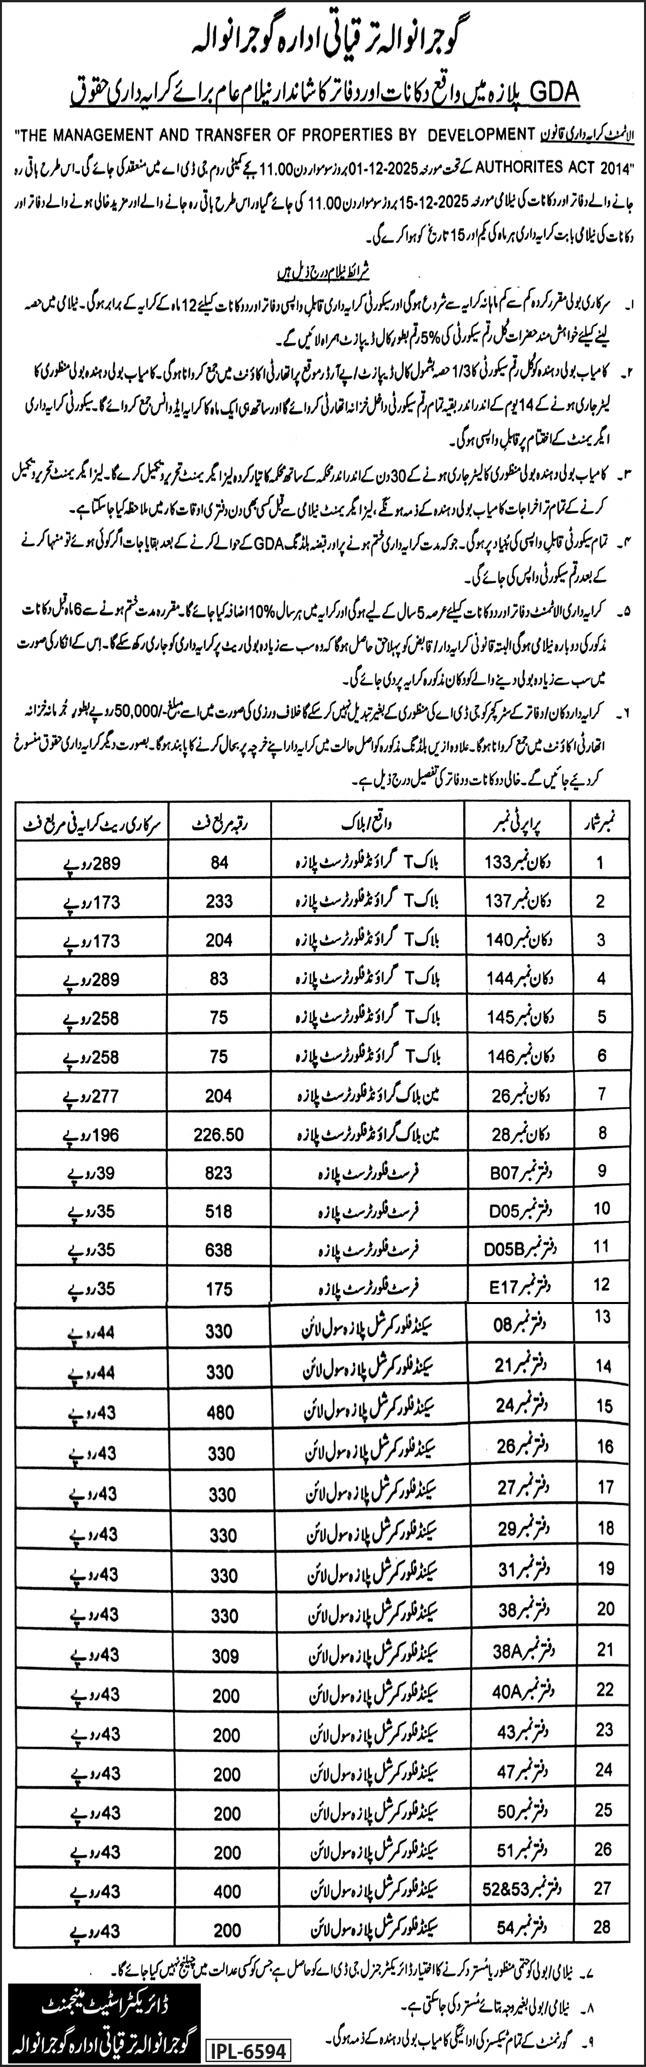 گوجرانوالہ ترقیاتی ادارہ گوجرانوالہ
GDA پلازہ میں واقع دکانات اور دفاتر کا شاندار نیلام عام برائے کرایہ داری حقوق
الاٹمنٹ کرایہ داری قانون "THE MANAGEMENT AND TRANSFER OF PROPERTIES BY DEVELOPMENT
AUTHORITES ACT 2014" کے تحت مورخہ 01-12-2025 بروز سوموار دن 11.00 بجے کمیٹی روم جی ڈی اے میں منعقد کی جائے گی۔ اس طرح باقی رہ
جانے والے دفاتر اور دکانات کی نیلامی مورخہ 15-12-2025 بروز سوموار دن 11.00 کی جائے گی اور اس طرح باقی رہ جانے والے اور مزید خالی ہونے والے دفاتر اور
دکانات کی نیلامی بابت کرایہ داری ہر ماہ کی یکم اور 15 تاریخ کو ہوا کرے گی۔
شرائط نیلام درج ذیل ہیں
۱۔ سرکاری بولی مقرر کردہ کم سے کم ماہانہ کرایہ سے شروع ہوگی اور سیکورٹی کرایہ داری قابل واپسی دفاتر اور دکانات کیلئے 12 ماہ کے کرایہ کے برابر ہوگی۔ نیلامی میں حصہ
لینے کیلئے خواہش مند حضرات کُل رقم سیکورٹی کی %5 رقم بطور کال ڈیپازٹ ہمراہ لائیں گے۔
۲۔ کامیاب بولی دہندہ کو کُل رقم سیکورٹی کا 1/3 حصہ بشمول کال ڈیپازٹ/پے آرڈر موقع پر اتھارٹی اکاؤنٹ میں جمع کروانا ہوگی۔ کامیاب بولی دہندہ بولی منظوری کا
لیٹر جاری ہونے کے 14 یوم کے اندر اندر بقیہ تمام رقم سیکورٹی داخل خزانہ اتھارٹی کروائے گا اور ساتھ ہی ایک ماہ کا کرایہ ایڈوانس جمع کروائے گا۔ سیکورٹی کرایہ داری
ایگریمنٹ کے اختتام پر قابل واپسی ہوگی۔
۳۔ کامیاب بولی دہندہ بولی منظوری کا لیٹر جاری ہونے کے 30 دن کے اندر اندر محکمہ کے ساتھ محکمہ کا تیار کردہ لیز ایگریمنٹ تحریر و تکمیل کرے گا۔ لیز ایگریمنٹ تحریر و تکمیل
کرنے کے تمام تر اخراجات کامیاب بولی دہندہ کے ذمہ ہونگے، لیز ایگریمنٹ نیلامی سے قبل کسی بھی دن دفتری اوقات کار میں ملاحظہ کیا جا سکتا ہے۔
۴۔ تمام سیکورٹی قابل واپسی کی بنیاد پر ہوگی۔ جو کہ مدت کرایہ داری ختم ہونے پر اور قبضہ بلڈنگ GDA کے حوالے کرنے کے بعد بقایا جات اگر کوئی ہوئے تو منہا کرنے
کے بعد رقم سیکورٹی واپس کی جائے گی۔
۵۔ کرایہ داری الاٹمنٹ دفاتر اور دکانات کیلئے عرصہ 5 سال کے لیے ہوگی اور کرایہ میں ہر سال %10 اضافہ کیا جائے گا۔ مقررہ مدت ختم ہونے سے 6 ماہ قبل دکانات
مذکور کی دوبارہ نیلامی ہوگی البتہ قانونی کرایہ دار/قابض کو پہلا حق حاصل ہوگا کہ وہ سب سے زیادہ بولی ریٹ پر کرایہ داری کو جاری رکھ سکے گا۔ اِس کے انکار کی صورت
میں سب سے زیادہ بولی دینے والے کو دکان مذکورہ کرایہ پر دی جائے گی۔
۶۔ کرایہ دار دکان/دفاتر کے سٹرکچر کو جی ڈی اے کی منظوری کے بغیر تبدیل نہیں کر سکے گا خلاف ورزی کی صورت میں اسے مبلغ -/50,000 روپے بطور جرمانہ خزانہ
اتھارٹی اکاؤنٹ میں جمع کروانا ہوگا۔ علاوہ ازیں بلڈنگ مذکورہ کو اصل حالت میں کرایہ دار اپنے خرچہ پر بحال کرنے کا پابند ہوگا۔ بصورت دیگر کرایہ داری حقوق منسوخ
کر دیئے جائیں گے۔ خالی دوکانات و دفاتر کی تفصیل درج ذیل ہے۔
نمبر شمار پراپرٹی نمبر واقع/بلاک رقبہ مربع فٹ سرکاری ریٹ کرایہ فی مربع فٹ
1 دکان نمبر 133 بلاک T گراؤنڈ فلور ٹرسٹ پلازہ 84 289 روپے
2 دکان نمبر 137 بلاک T گراؤنڈ فلور ٹرسٹ پلازہ 233 173 روپے
3 دکان نمبر 140 بلاک T گراؤنڈ فلور ٹرسٹ پلازہ 204 173 روپے
4 دکان نمبر 144 بلاک T گراؤنڈ فلور ٹرسٹ پلازہ 83 289 روپے
5 دکان نمبر 145 بلاک T گراؤنڈ فلور ٹرسٹ پلازہ 75 258 روپے
6 دکان نمبر 146 بلاک T گراؤنڈ فلور ٹرسٹ پلازہ 75 258 روپے
7 دکان نمبر 26 مین بلاک گراؤنڈ فلور ٹرسٹ پلازہ 204 277 روپے
8 دکان نمبر 28 مین بلاک گراؤنڈ فلور ٹرسٹ پلازہ 226.50 196 روپے
9 دفتر نمبر B07 فرسٹ فلور ٹرسٹ پلازہ 823 39 روپے
10 دفتر نمبر D05 فرسٹ فلور ٹرسٹ پلازہ 518 35 روپے
11 دفتر نمبر D05B فرسٹ فلور ٹرسٹ پلازہ 638 35 روپے
12 دفتر نمبر E17 فرسٹ فلور ٹرسٹ پلازہ 175 35 روپے
13 دفتر نمبر 08 سیکنڈ فلور کمرشل پلازہ سول لائن 330 44 روپے
14 دفتر نمبر 21 سیکنڈ فلور کمرشل پلازہ سول لائن 330 44 روپے
15 دفتر نمبر 24 سیکنڈ فلور کمرشل پلازہ سول لائن 480 43 روپے
16 دفتر نمبر 26 سیکنڈ فلور کمرشل پلازہ سول لائن 330 43 روپے
17 دفتر نمبر 27 سیکنڈ فلور کمرشل پلازہ سول لائن 330 43 روپے
18 دفتر نمبر 29 سیکنڈ فلور کمرشل پلازہ سول لائن 330 43 روپے
19 دفتر نمبر 31 سیکنڈ فلور کمرشل پلازہ سول لائن 330 43 روپے
20 دفتر نمبر 38 سیکنڈ فلور کمرشل پلازہ سول لائن 330 43 روپے
21 دفتر نمبر 38A سیکنڈ فلور کمرشل پلازہ سول لائن 309 43 روپے
22 دفتر نمبر 40A سیکنڈ فلور کمرشل پلازہ سول لائن 200 43 روپے
23 دفتر نمبر 43 سیکنڈ فلور کمرشل پلازہ سول لائن 200 43 روپے
24 دفتر نمبر 47 سیکنڈ فلور کمرشل پلازہ سول لائن 200 43 روپے
25 دفتر نمبر 50 سیکنڈ فلور کمرشل پلازہ سول لائن 200 43 روپے
26 دفتر نمبر 51 سیکنڈ فلور کمرشل پلازہ سول لائن 200 43 روپے
27 دفتر نمبر 52&53 سیکنڈ فلور کمرشل پلازہ سول لائن 400 43 روپے
28 دفتر نمبر 54 سیکنڈ فلور کمرشل پلازہ سول لائن 200 43 روپے
۷۔ نیلامی/بولی کو حتمی منظور یا مسترد کرنے کا اختیار ڈائریکٹر جنرل جی ڈی اے کو حاصل ہے جس کو کسی عدالت میں چیلنج نہیں کیا جائے گا۔
۸۔ نیلامی/بولی بغیر وجہ بتائے مسترد کی جاسکتی ہے۔
۹۔ گورنمنٹ کے تمام ٹیکسز کی ادائیگی کا کامیاب بولی دہندہ کے ذمہ ہوگی۔
ڈائریکٹر اسٹیٹ مینجمنٹ
گوجرانوالہ ترقیاتی ادارہ گوجرانوالہ
IPL-6594